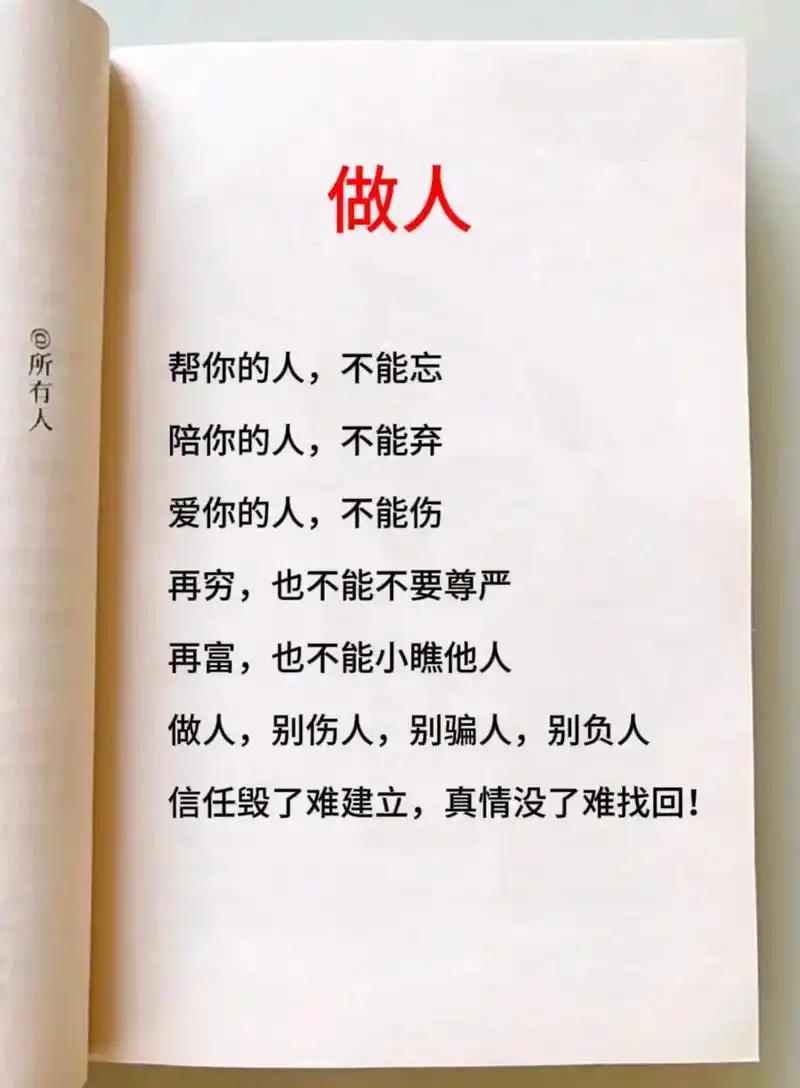 @所有人
做人
帮你的人，不能忘
陪你的人，不能弃
爱你的人，不能伤
再穷，也不能不要尊严
再富，也不能小瞧他人
做人，别伤人，别骗人，别负人
信任毁了难建立，真情没了难找回！